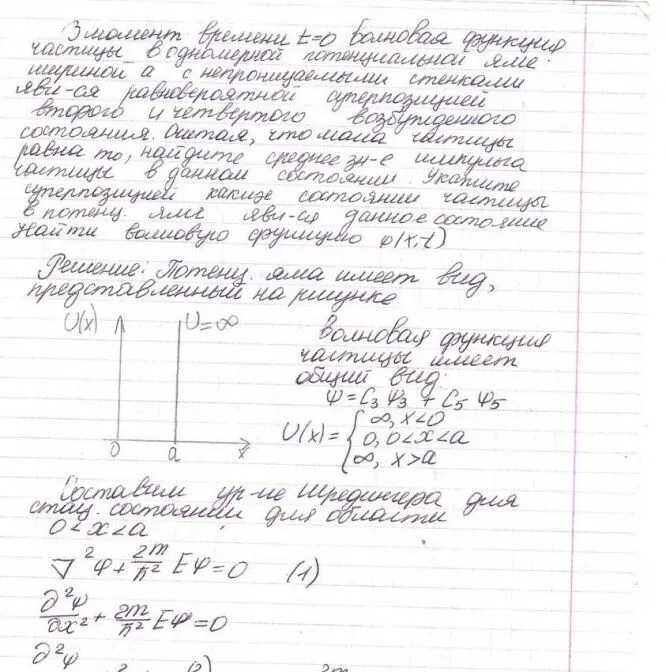 В момент времени t=0 волновая функция
частицы в одномерной потенциальной яме
шириной а с непроницаемыми стенками
яви-ся равновероятной суперпозицией
второго и четвертого возбужденного
состояния. Считая, что масса частицы
равна m₀, найдите среднее зн-е импульса
частицы в данном состоянии. Укажите
суперпозицией каких состояний частицы
в потенц. яме яви-ся данное состояние
Найти волновую функцию φ(x,t)
Решение: Потенц. яма имеет вид,
представленный на рисунке
U(x)
U=∞
0
a
x
Волновая функция
частицы имеет
общий вид:
Ψ = C₃ Ψ₃ + C₅ Ψ₅
U(x) = { ∞, x<0
0, 0<x<a
∞, x>a
Составим ур-ие Шредингера для
стац. состояний для области
0<x<a
∇²φ + 2m/ħ² Eφ = 0 (1)
∂²Ψ/∂x² + 2m/ħ² Eφ = 0
∂²Ψ